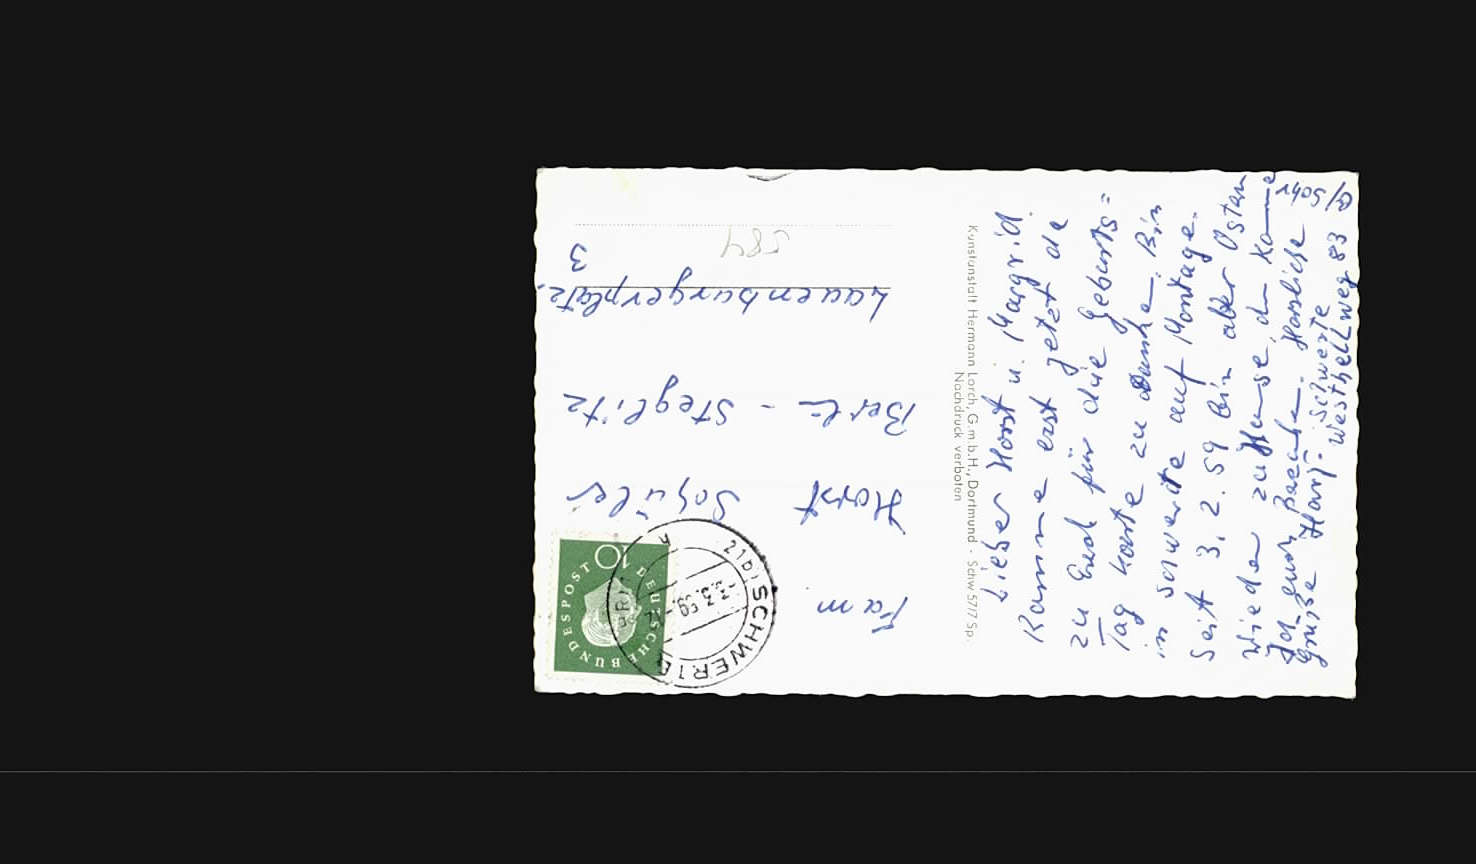 Lieber Horst u. Margrid.
Komme erst jetzt da
zu Euch für die Geburts=
Tag Karte zu danke. Bin
in Schwerte auf Montage.
Seit 3. 2. 59 bin aber Ostern
wieder zu Hause, dn komme
Ich euch Herzliche
Grüße
Schwerte
Westhellweg 83
Kunstanstalt Hermann Lorch, G.m.b.H., Dortmund - Schw 57/7 Sp.
Nachdruck verboten
DEUTSCHE BUNDESPOST
10
(21b) SCHWERTE
-3.3.59.
Fam
Horst Schüler
Berli - Steglitz
Lauenburgerplatz.
3
584